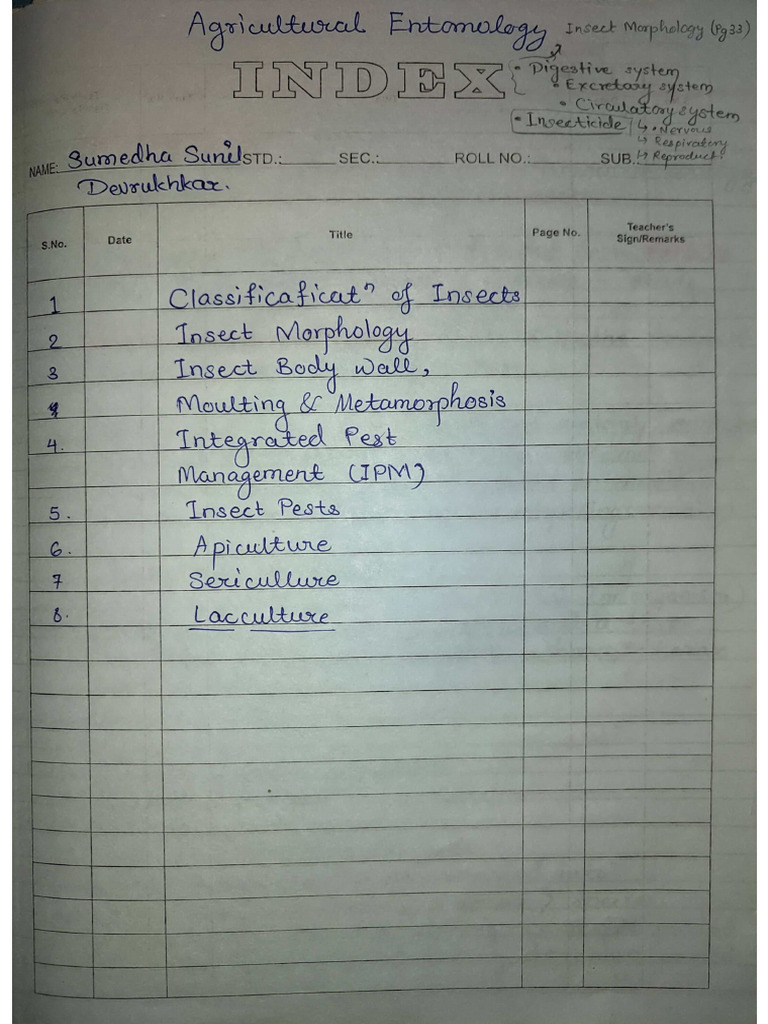 Agricultural Entomology
Insect Morphology (Pg 33)
INDEX
• Digestive system
• Excretory system
• Circulatory system
• Insecticide
• Nervous
Respiratory
Reproduct.
NAME: Sumedha Sunil STD.: SEC.: ROLL NO.: SUB.:
Devrukhkar.
S.No. Date Title Page No. Teacher's Sign/Remarks
1 Classificaficatⁿ of Insects
2 Insect Morphology
3 Insect Body Wall,
Moulting & Metamorphosis
4. Integrated Pest
Management (IPM)
5. Insect Pests
6. Apiculture
7 Sericulture
8. Lacculture